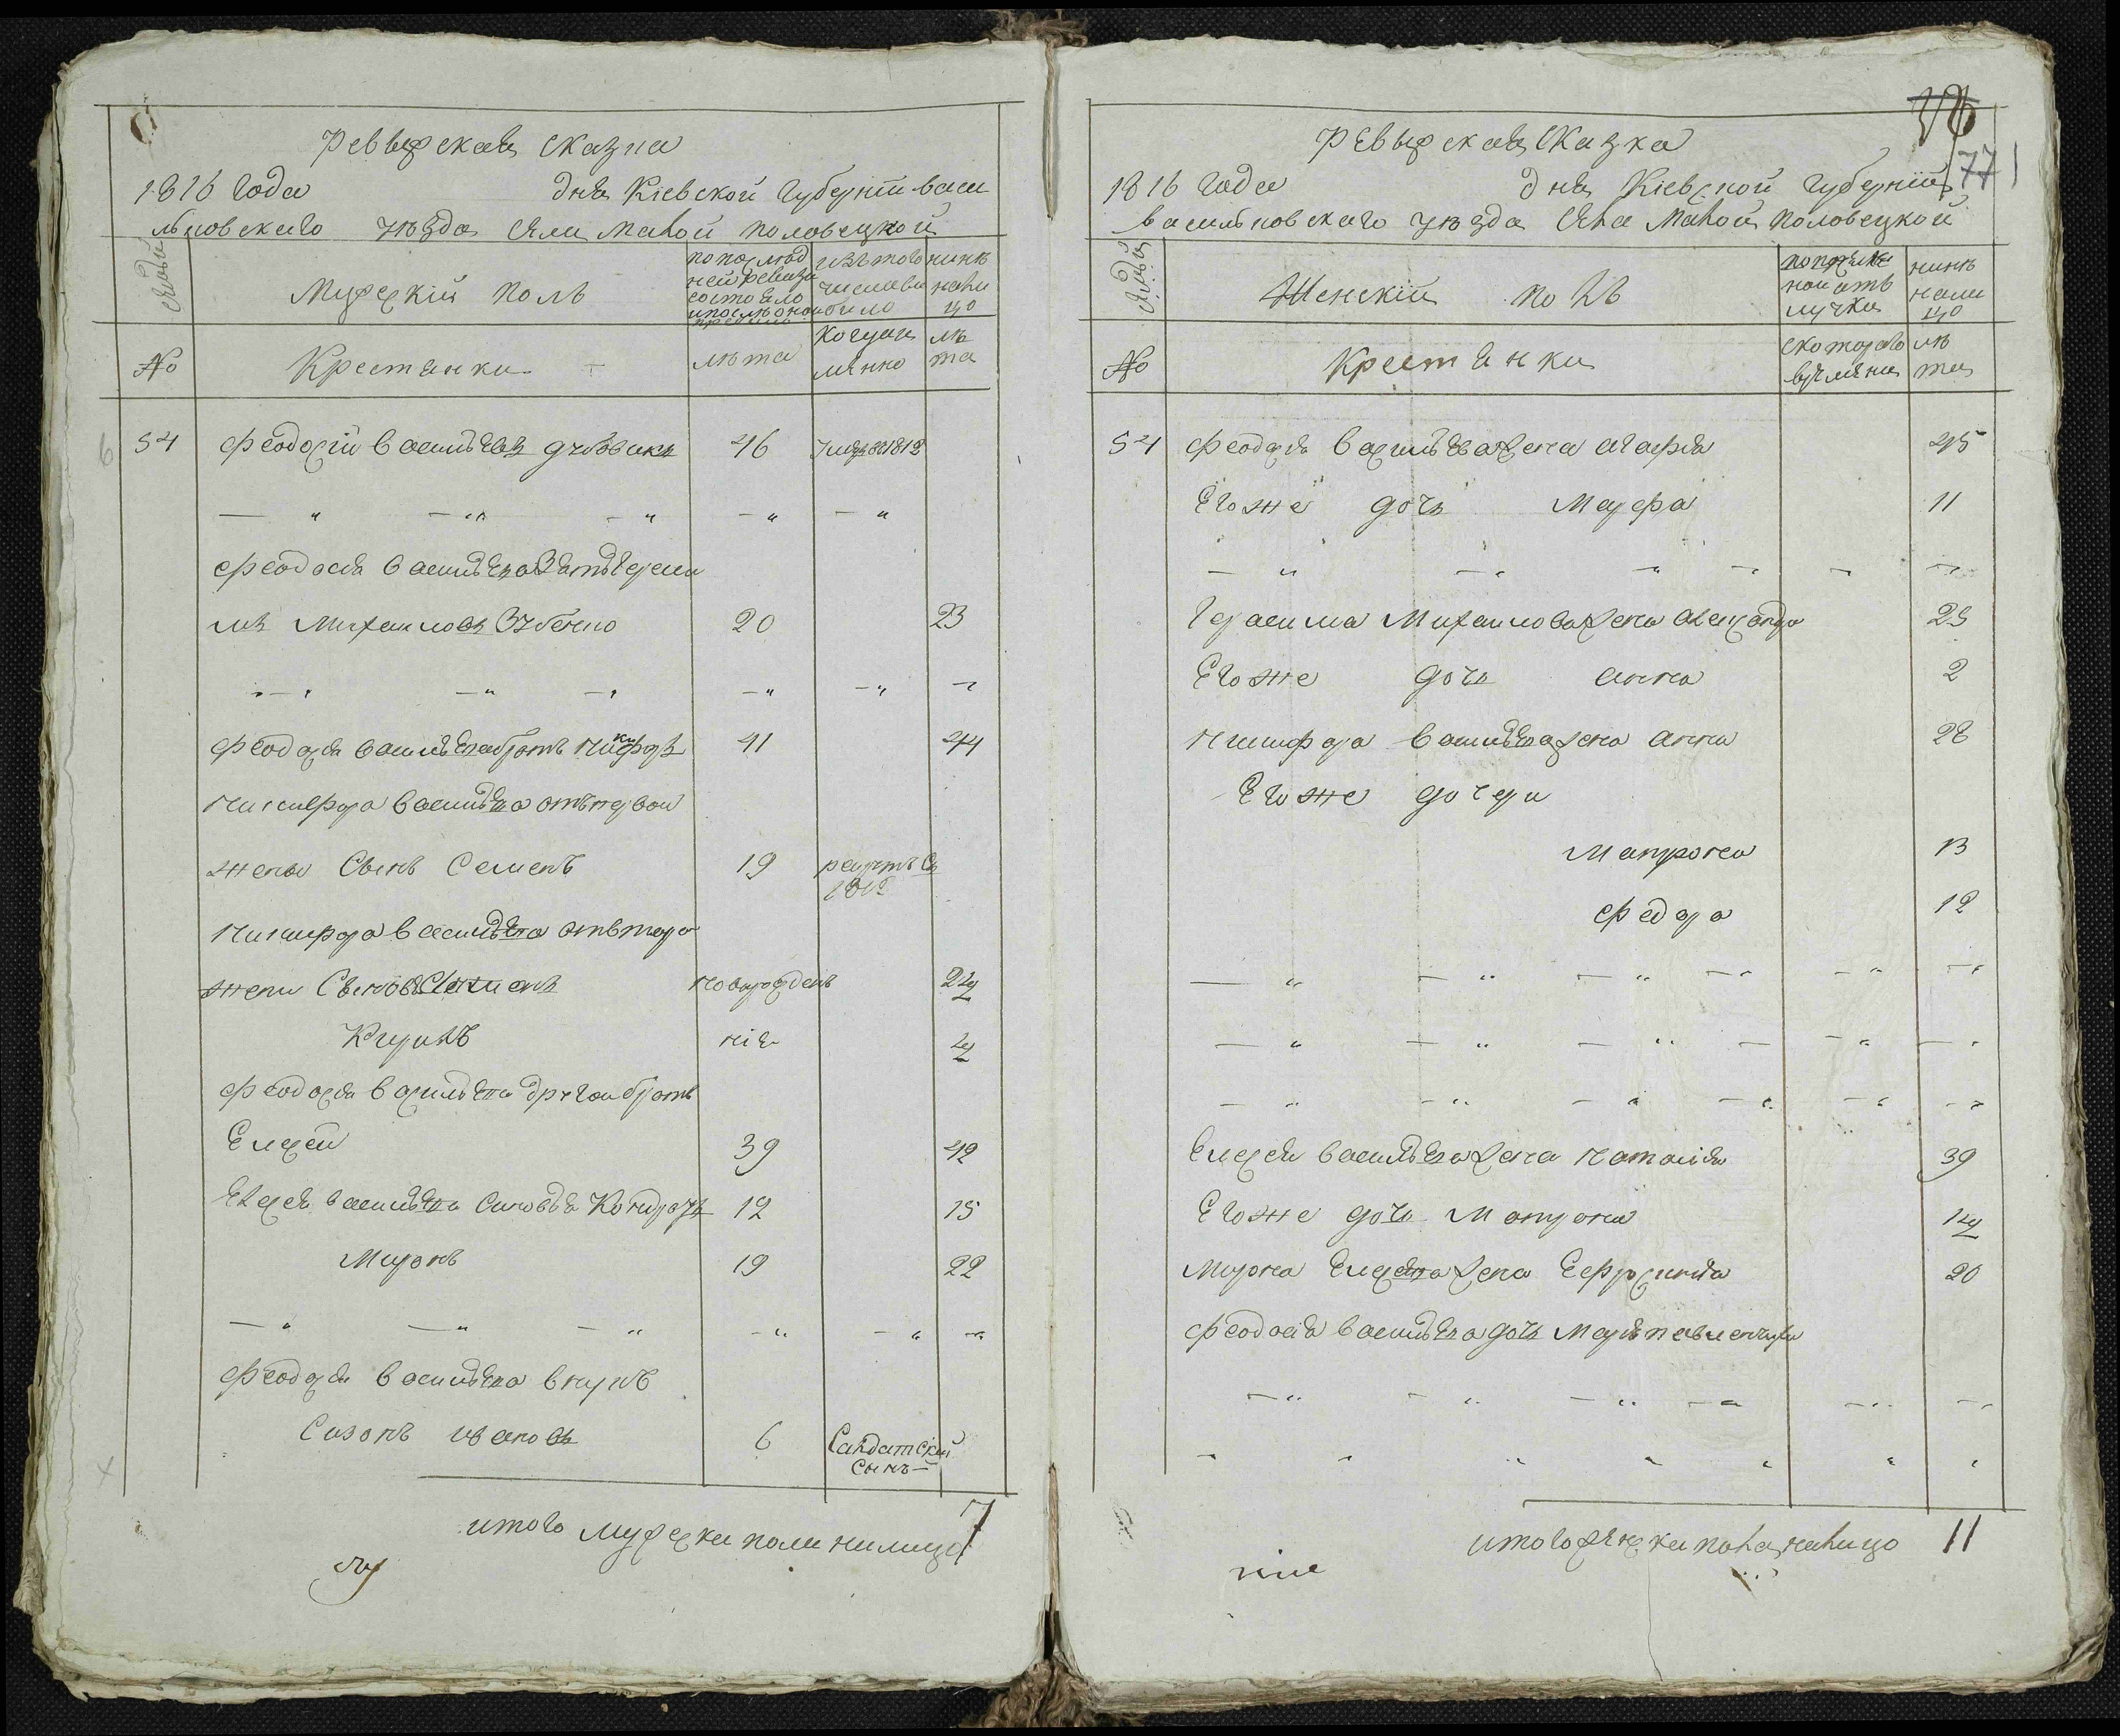 Ревызская сказка
1816 года дня Кіевской губерніи васи
льковскаго уезда села малой половецкой
Мужескій полъ
по послѣд
ней ревизи
состояло
изъ того
числа вы
было
нинѣ
нали
цо
№
Крестянки
лѣта
когда
имянно
лѣ
та
54 Феодосій васильевъ дубовикъ 46 умер въ 1812
Феодосія васильева зать гераси
мъ Михаиловъ Зубенко 20 23
Феодосія васильева братъ никифоръ 41 44
Никифора васильева отъ первои
жены Сынъ Семенъ 19 рекрутъ Съ
1812
Никифора васильева отъ втора
жени Синовя новорожденъ 2
Кирилъ нія 2
Феодосія васильева другои братъ
Елисей 39 42
Елисея васильева Синовья Кондратъ 12 15
Миронъ 19 22
Феодосія васильева внукъ
Сизонъ ивановъ 6 Салдатскій
Сынъ
итого мужеска пола налицо 7
77
Ревызская Сказка
1816 года дня Кіевской губерніи
васильковского уезда села малой половецкой
Женскій полъ
во времен
нои отъ
лучки
нинѣ
нали
цо
№
Крестянки
скоторого
времени
лѣ
та
54 Феодосія васильева жена агафія 45
Егоже дочь Марфа 11
Герасима Михаилова жена александра 25
Егоже дочь анна 2
Никифора васильева жена анна 28
Егоже дочери
Матрона 13
Федора 12
Елисея васильева жена наталія 39
Егоже дочь Матрона 14
Мирона Елисеева жена Ефросинія 20
Феодосія васильева дочь Марія
итого женска пола налицо 11